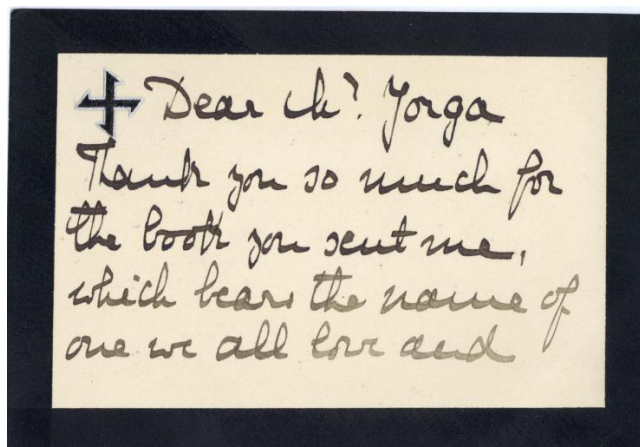 Dear Mr. Jorga
Thank you so much for
the book you sent me,
which bears the name of
one we all love and